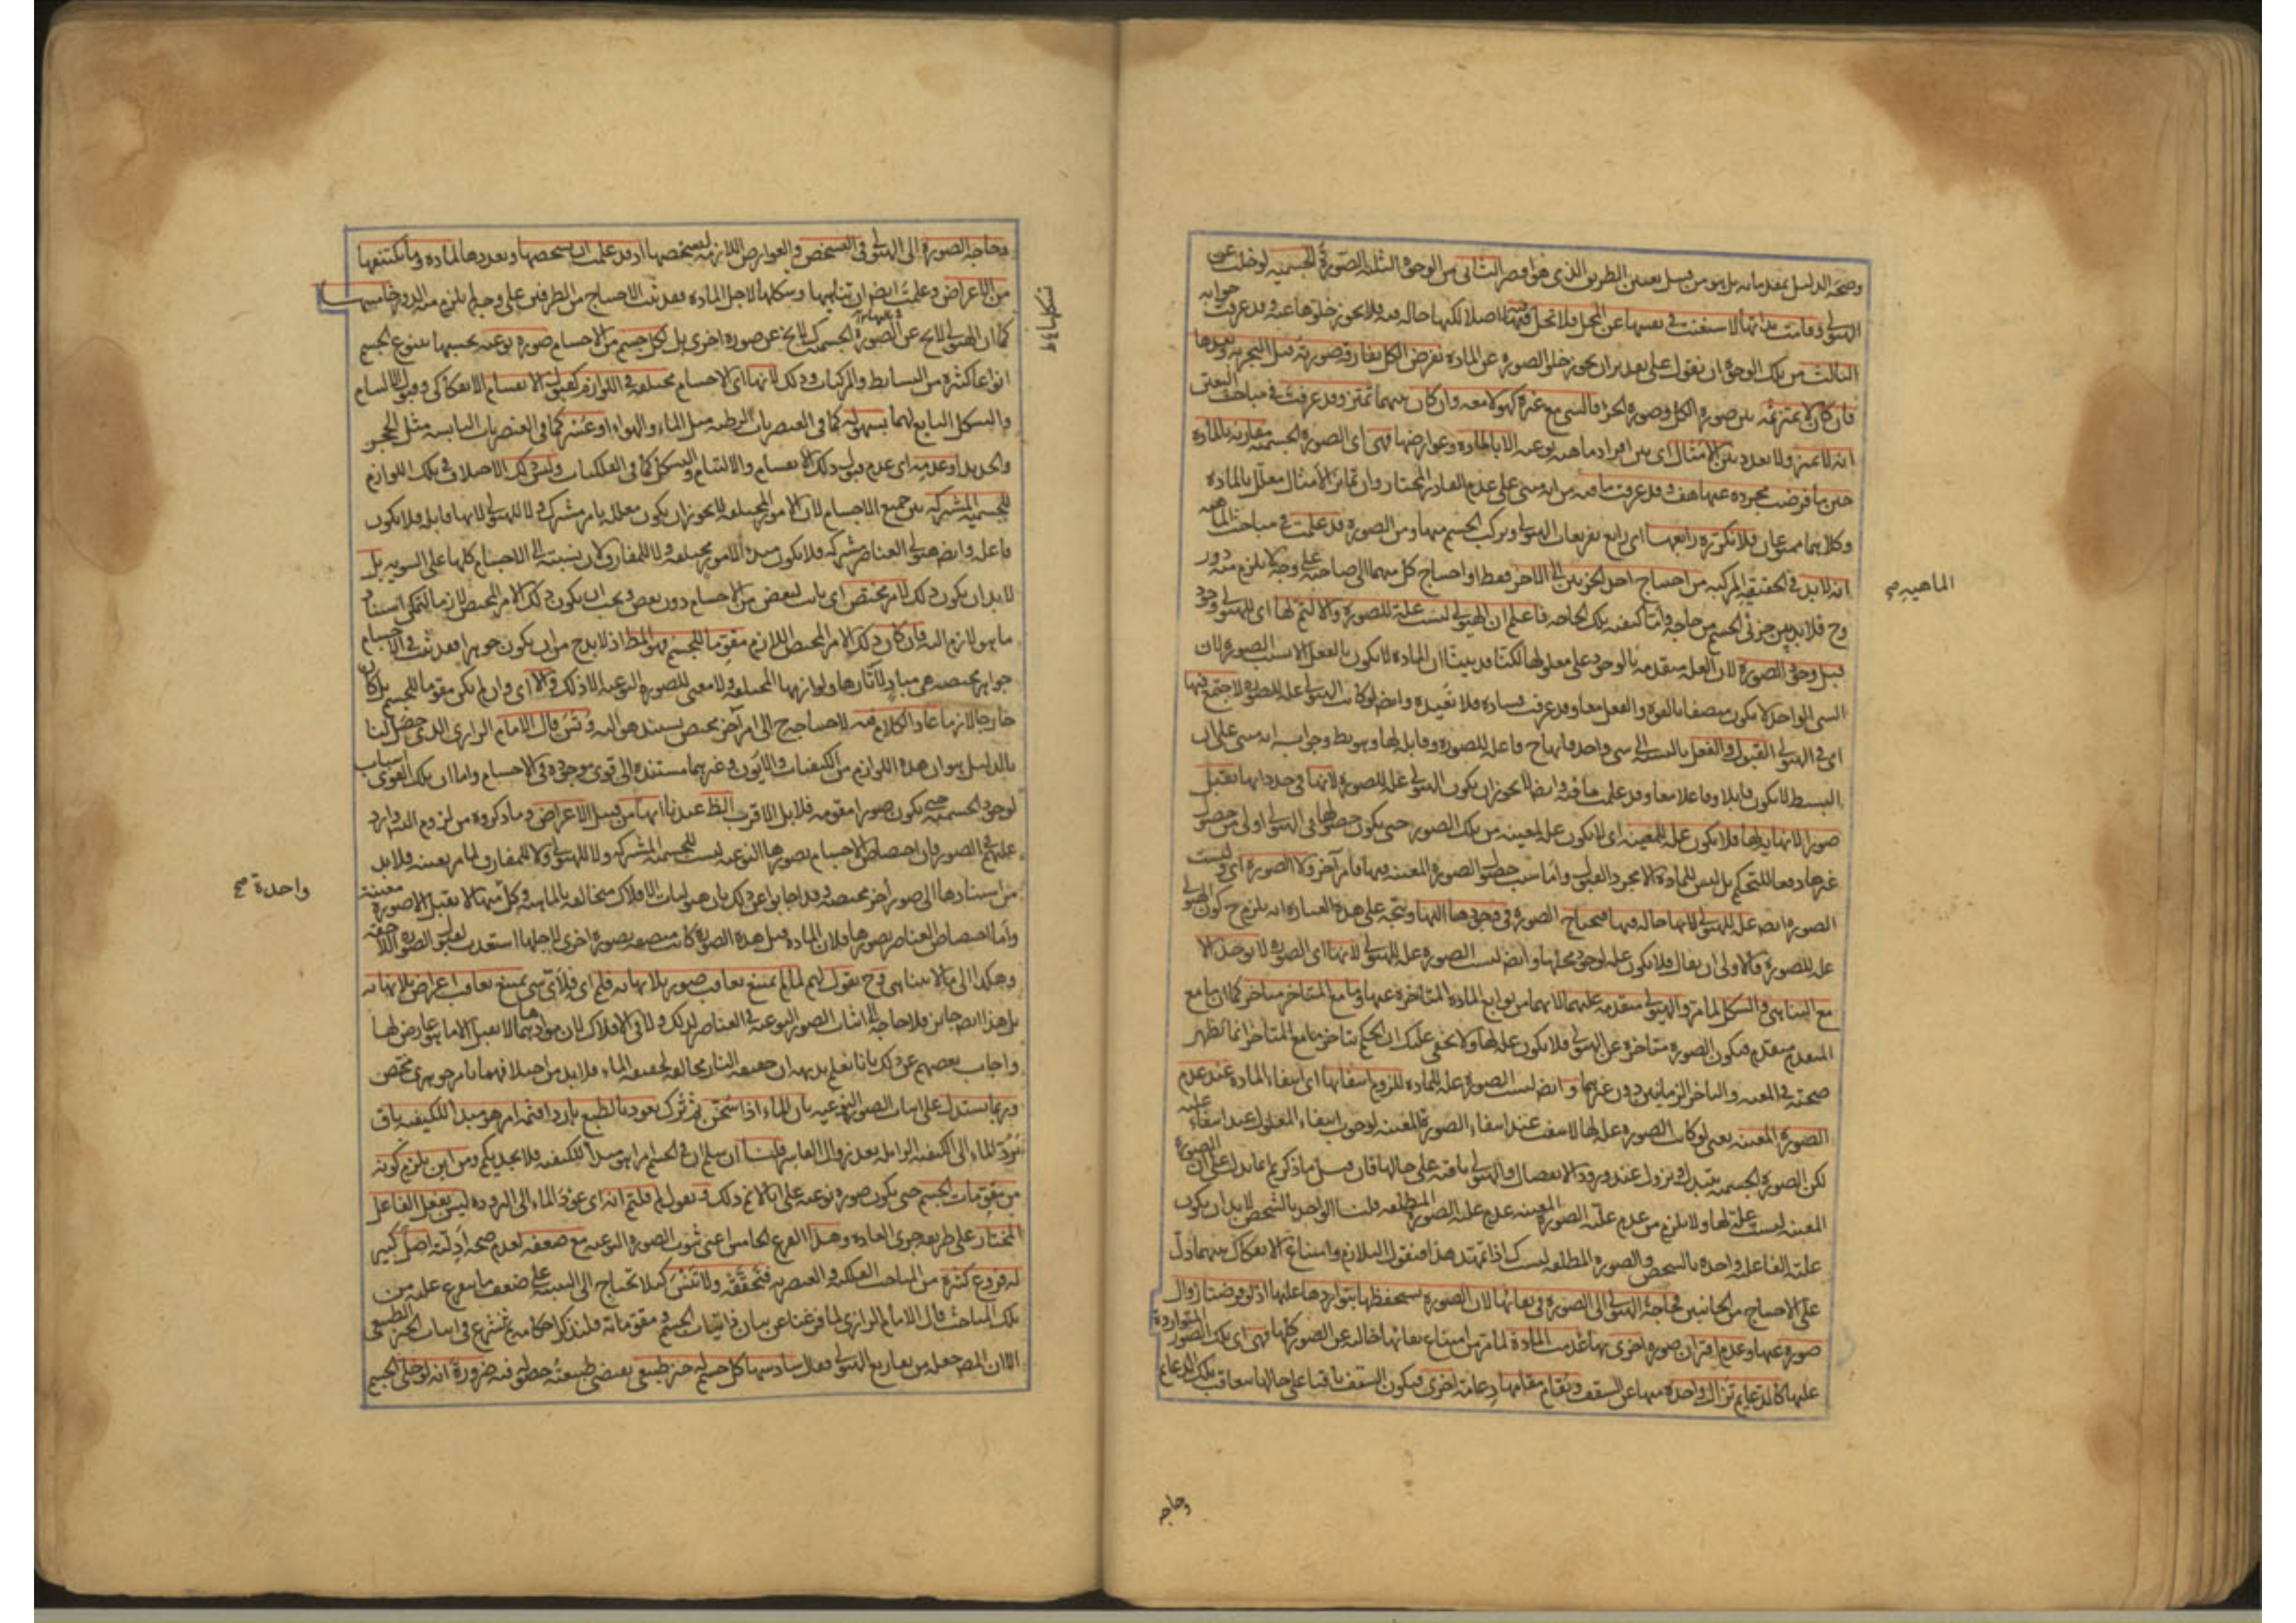 وصحة الدليل بمقدماته بل هو من قبيل الطريق الذي هو الوجه الثاني من الوجوه الثلثة الصورة الجسمية لو خلت عن
الهيولى وقامت بذاتها لاستغنت في نفسها عن المحل فلا تحل فيه اصلا لكنها حالة فيه فلا يجوز خلوها عنه وقد عرفت جوابه
الثالث من تلك الوجوه ان نقول على تقدير ان يجوز خلو الصورة عن المادة نفرض الكل بفارق صورته قبل التجزية وبعدها
فان كان لا يميز ثمه بين صورة الكل وصورة الجزء فالشى مع غيره كهو لا معه وان كان بينهما تميز وقد عرفت في مباحث التعين
انه لا تميز ولا تعدد بين الامثال اى بين افراد ماهية نوعية الا بالمادة وعوارضها فهى اى الصورة الجسمية مقارنة بالمادة
حين ما فرضت مجردة عنها هف وقد عرفت ما فيه من انه مبنى على عدم الفاعل المختار وان تمايز الامثال معلل بالمادة
وكلاهما ممنوعان فلا نكرره رابعها اى رابع تفريعات الهيولى وتركب الجسم منها ومن الصورة قد علمت في مباحث الماهية
انه لا بد في الحقيقة المركبة من احتياج احد الجزئين الى الاخر فقط او احتياج كل منهما الى صاحبه على وجه لا يلزم منه دور
وح فلا بد بين جزئى الجسم من حاجة واما كيفية تلك الحاجة فاعلم ان الهيولى ليست علة للصورة والا لتم لها اى للهيولى وجود
قبل وجود الصورة لان العلة متقدمة بالوجود على معلولها لكنا قد بينا ان المادة لا يكون بالفعل الا بسبب الصورة لان
الشى الواحد لا يكون متصفا بالقوة والفعل معا وقد عرفت فساده فلا نعيده وايضا لو كانت الهيولى علة للصورة لاجتمع فيها
اى في الهيولى القبول والفعل بالنسبة الى شى واحد فانها ح فاعلة للصورة وقابلة لها وهو بط وجوابه انه مبنى على ان
البسيط لا يكون قابلا وفاعلا معا وقد علمت ما فيه وايضا لا يجوز ان يكون الهيولى علة للصورة لانها في حد ذاتها تقبل
صورا لا نهاية لها فلا يكون علة للمعينة اى لا يكون علة لمعينة من تلك الصور حتى يكون حصولها في الهيولى اولى من حصول
غيرها دفعا للتحكم بل ليس للمادة الا مجرد القبول واما سبب حصول الصورة المعينة فيها فامر آخر ولا الصورة اى وليست
الصورة ايضا علة للهيولى لانها حالة فيها فتحتاج الصورة في وجودها اليها ويتجه على هذه العبارة انه يلزم ح كون الهيولى
علة للصورة فالاولى ان يقال فلا يكون علة لوجود محلها وايضا ليست الصورة علة للهيولى لانها اى الصورة لا توجد الا
مع التناهى والشكل لما مر والهيولى متقدمة عليهما لانهما من توابع المادة المتاخرة عنها وما مع المتاخر متاخر كما ان ما مع
المتقدم متقدم فيكون الصورة متاخرة عن الهيولى فلا يكون علة لها ولا يخفى عليك ان الحكم بتاخر ما مع المتاخر انما تظهر
صحته في المعية والتاخر الزمانيين دون غيرهما وايضا ليست الصورة علة للمادة للزوم انتفائها اى انتفاء المادة عند عدم
الصورة المعينة يعنى لو كانت الصورة علة لها لانتفت عند انتفاء الصورة المعينة لوجوب انتفاء المعلول عند انتفاء علته
لكن الصورة الجسمية تتبدل وتزول عند ورود الانفصال والهيولى باقية على حالها فان قيل ما ذكرتم انما يدل على ان الصورة
المعينة ليست علة لها ولا يلزم من عدم علية الصورة المعينة عدم علية الصورة المطلقة قلنا الواحد بالشخص لا بد ان يكون
علته الفاعلية واحدة بالشخص والصورة المطلقة ليست كذا تمهد هذا فنقول التلازم وامتناع الانفكاك بينهما دل
على الاحتياج من الجانبين فحاجة الهيولى الى الصورة في بقائها لان الصورة يستحفظها بتواردها عليها اذ لو فرضنا زوال
صورة عنها وعدم اقتران صورة اخرى بها عدمت المادة لما مر من امتناع بقائها خالية عن الصور كلها فهى اى تلك الصور المتواردة
عليها كالدعايم تزال واحدة منها عن السقف ويقام مقامها دعامة اخرى فيكون السقف باقيا على حالها بتعاقب تلك الدعايم
الماهيه صح
وحاجة
وحاجة الصورة الى الهيولى في التشخص والعوارض اللازمة لتشخصها اذ قد علمت ان تشخصها وتعددها للمادة وما يكتنفها
من الاعراض وعلمت ايضا ان تناهيها وتشكلها لاجل المادة فقد ثبت الاحتياج من الطرفين على وجه لم يلزم منه الدور خامسها
كما ان الهيولى لا تخ عن الصورة الجسمية لا تخ عن صورة اخرى بل لكل جسم من الاجسام صورة نوعية بحسبها يتنوع الجسم
انواعا كثيرة من البسايط والمركبات وذلك لانها اى الاجسام مختلفة في اللوازم كقبول الانقسام الانفكاكى وقبول الالتيام
والتشكل التابع لهما بسهولة كما في العنصريات الرطبة مثل الماء والهواء او عسر كما في العنصريات اليابسة مثل الحجر
والحديد او عدمه اى عدم قبول ذلك الانقسام والالتيام والتشكل كما في الفلكيات وليس ذلك الاختلاف في تلك اللوازم
للجسمية المشتركة بين جميع الاجسام لان الامور المختلفة لا يجوز ان يكون معللة بامر مشترك ولا للهيولى لانها قابلة فلا يكون
فاعلة وايضا هيولى العناصر مشتركة فلا يكون مبدأ لامور مختلفة ولا للمفارق لان نسبته الى الاجسام كلها على السوية بل
لا بد ان يكون ذلك لامر مختص اى ثابت لبعض من الاجسام دون بعض ويجب ان يكون ذلك الامر المختص لازما ليمكن استناد
ما هو لازم اليه فان كان ذلك الامر المختص اللازم مقوما للجسم فهو المط اذ لا بد ح من ان يكون جوهرا فقد ثبت في الاجسام
جواهر مختصة هى مباد لآثارها ولوازمها المختلفة ولا معنى للصورة النوعية الا ذلك والا اى وان لم يكن مقوما للجسم بل كان
خارجا لازما عاد الكلام فيه لاحتياجه ح الى امر آخر مختص يستند هو اليه وتس قال الامام الرازى الذى حصل لنا
بالدليل هو ان هذه اللوازم من الكيفيات والايون وغيرهما مستندة الى قوى موجودة في الاجسام واما ان تلك القوى اسباب
لوجود الجسمية حتى يكون صورا مقومة فلا بل الاقرب الظ عندنا انها من قبيل الاعراض وما ذكروه من لزوم التس وارد
عليهم في الصور فان اختصاص الاجسام بصورها النوعية ليست للجسمية المشتركة ولا للهيولى ولا للمفارق لما مر بعينه فلا بد
من استنادها الى صور أخر مختصة وقد اجابوا عن ذلك بان هيوليات الافلاك متخالفة بالماهية وكل منها لا تقبل الا صورة معينة
واما اختصاص العناصر بصورها فلان المادة قبل هذه الصورة كانت متصفة بصورة اخرى لاجلها استعدت لقبول الصورة اللاحقة
وهكذا الى ما لا يتناهى وح نقول لهم لما لم يمتنع تعاقب صور بلا نهاية فلم اى فلاى شى يمتنع تعاقب اعراض بلا نهاية
بل هذا ايضا جايز فلا حاجة الى اثبات الصور النوعية في العناصر لذلك ولا في الافلاك لان موادها لا تقبل الا ما هو عارض لها
واجاب بعضهم عن ذلك بانا نعلم بديهة ان حقيقة النار مخالفة لحقيقة الماء فلا بد من اختلافهما بامر جوهرى مختص
وربما يستدل على اثبات الصور النوعية بان الماء اذا سخن ثم ترك يعود بالطبع باردا فثمه امر هو مبدأ للكيفية باق
يرد الماء الى الكيفية الزايلة بعد زوال القاسر قلنا ان سلم ان في الجسم امرا هو مبدأ للكيفية فلا يجديكم ومن اين يلزم كونه
من مقومات الجسم حتى يكون صورة نوعية على انا لا نم ذلك ونقول لم قلتم انه اى عود الماء الى البرودة ليس بفعل الفاعل
المختار على طريقة جرى العادة وهذا الفرع الخامس اعنى ثبوت الصورة النوعية مع ضعفه لعدم صحة أدلته اصل كبير
له فروع كثيرة من المباحث الفلكية والعنصرية فتحققه ولا تنس كيلا تحتاج الى التنبيه على ضعف ما يتفرع عليه من
تلك المباحث قال الامام الرازى لما فرغنا عن بيان ذاتيات الجسم ومقوماته فلنذكر احكامه ثم شرع في اثبات الحيز الطبيعى
الا ان المص جعله من تفاريع الهيولى فقال سادسها كل جسم له حيز طبيعى يقتضى طبيعته حصوله فيه ضرورة انه لو خلى الجسم
واحدة صح